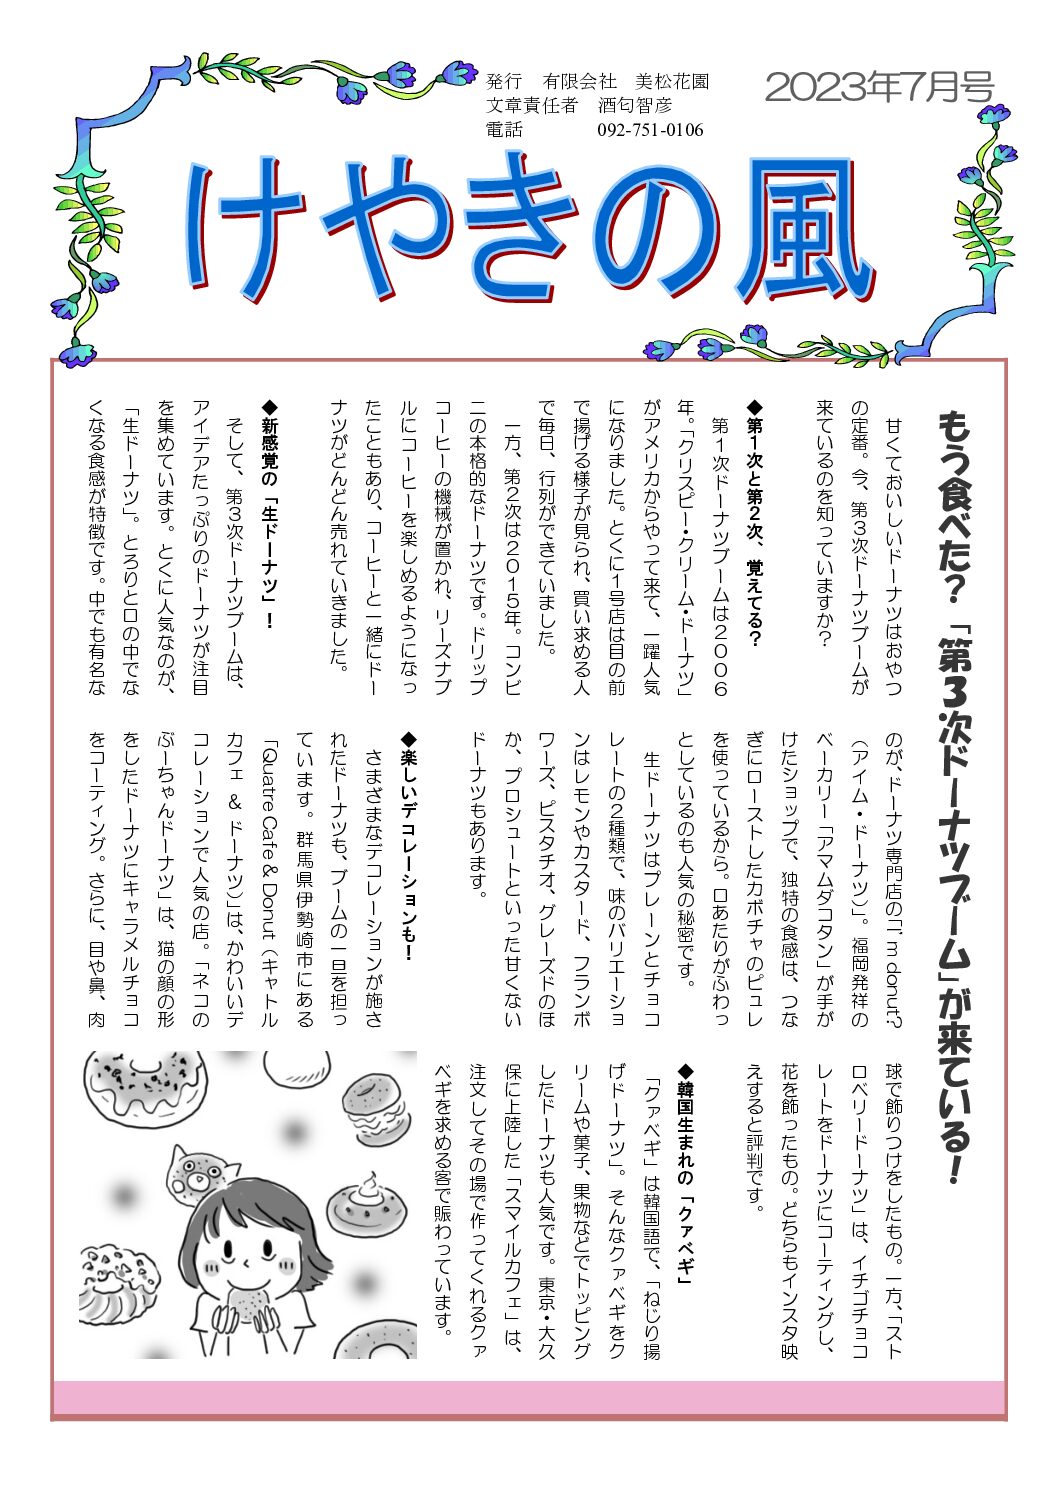 発行　有限会社　美松花園
文章責任者　酒匂智彦
電話　092-751-0106
2023年7月号
けやきの風
もう食べた？「第３次ドーナツブーム」が来ている！
甘くておいしいドーナツはおやつ
の定番。今、第３次ドーナツブームが
来ているのを知っていますか？
◆第１次と第２次、覚えてる？
第１次ドーナツブームは２００６
年。「クリスピー・クリーム・ドーナツ」
がアメリカからやって来て、一躍人気
になりました。とくに１号店は目の前
で揚げる様子が見られ、買い求める人
で毎日、行列ができていました。
一方、第２次は２０１５年。コンビ
ニの本格的なドーナツです。ドリップ
コーヒーの機械が置かれ、リーズナブ
ルにコーヒーを楽しめるようになっ
たこともあり、コーヒーと一緒にドー
ナツがどんどん売れていきました。
◆新感覚の「生ドーナツ」！
そして、第３次ドーナツブームは、
アイデアたっぷりのドーナツが注目
を集めています。とくに人気なのが、
「生ドーナツ」。とろりと口の中でな
くなる食感が特徴です。中でも有名な
のが、ドーナツ専門店の「I'm donut?
（アイム・ドーナツ）」。福岡発祥の
ベーカリー「アマムダコタン」が手が
けたショップで、独特の食感は、つな
ぎにローストしたカボチャのピュレ
を使っているから。口あたりがふわっ
としているのも人気の秘密です。
生ドーナツはプレーンとチョコ
レートの２種類で、味のバリエーショ
ンはレモンやカスタード、フランボ
ワーズ、ピスタチオ、グレーズドのほ
か、プロシュートといった甘くない
ドーナツもあります。
◆楽しいデコレーションも！
さまざまなデコレーションが施さ
れたドーナツも、ブームの一旦を担っ
ています。群馬県伊勢崎市にある
「Quatre Cafe & Donut（キャトル
カフェ & ドーナツ）」は、かわいいデ
コレーションで人気の店。「ネコの
ぶーちゃんドーナツ」は、猫の顔の形
をしたドーナツにキャラメルチョコ
をコーティング。さらに、目や鼻、肉
球で飾りつけをしたもの。一方、「スト
ロベリードーナツ」は、イチゴチョコ
レートをドーナツにコーティングし、
花を飾ったもの。どちらもインスタ映
えすると評判です。
◆韓国生まれの「クァベギ」
「クァベギ」は韓国語で、「ねじり揚
げドーナツ」。そんなクァベギをク
リームや菓子、果物などでトッピング
したドーナツも人気です。東京・大久
保に上陸した「スマイルカフェ」は、
注文してその場で作ってくれるクァ
ベギを求める客で賑わっています。